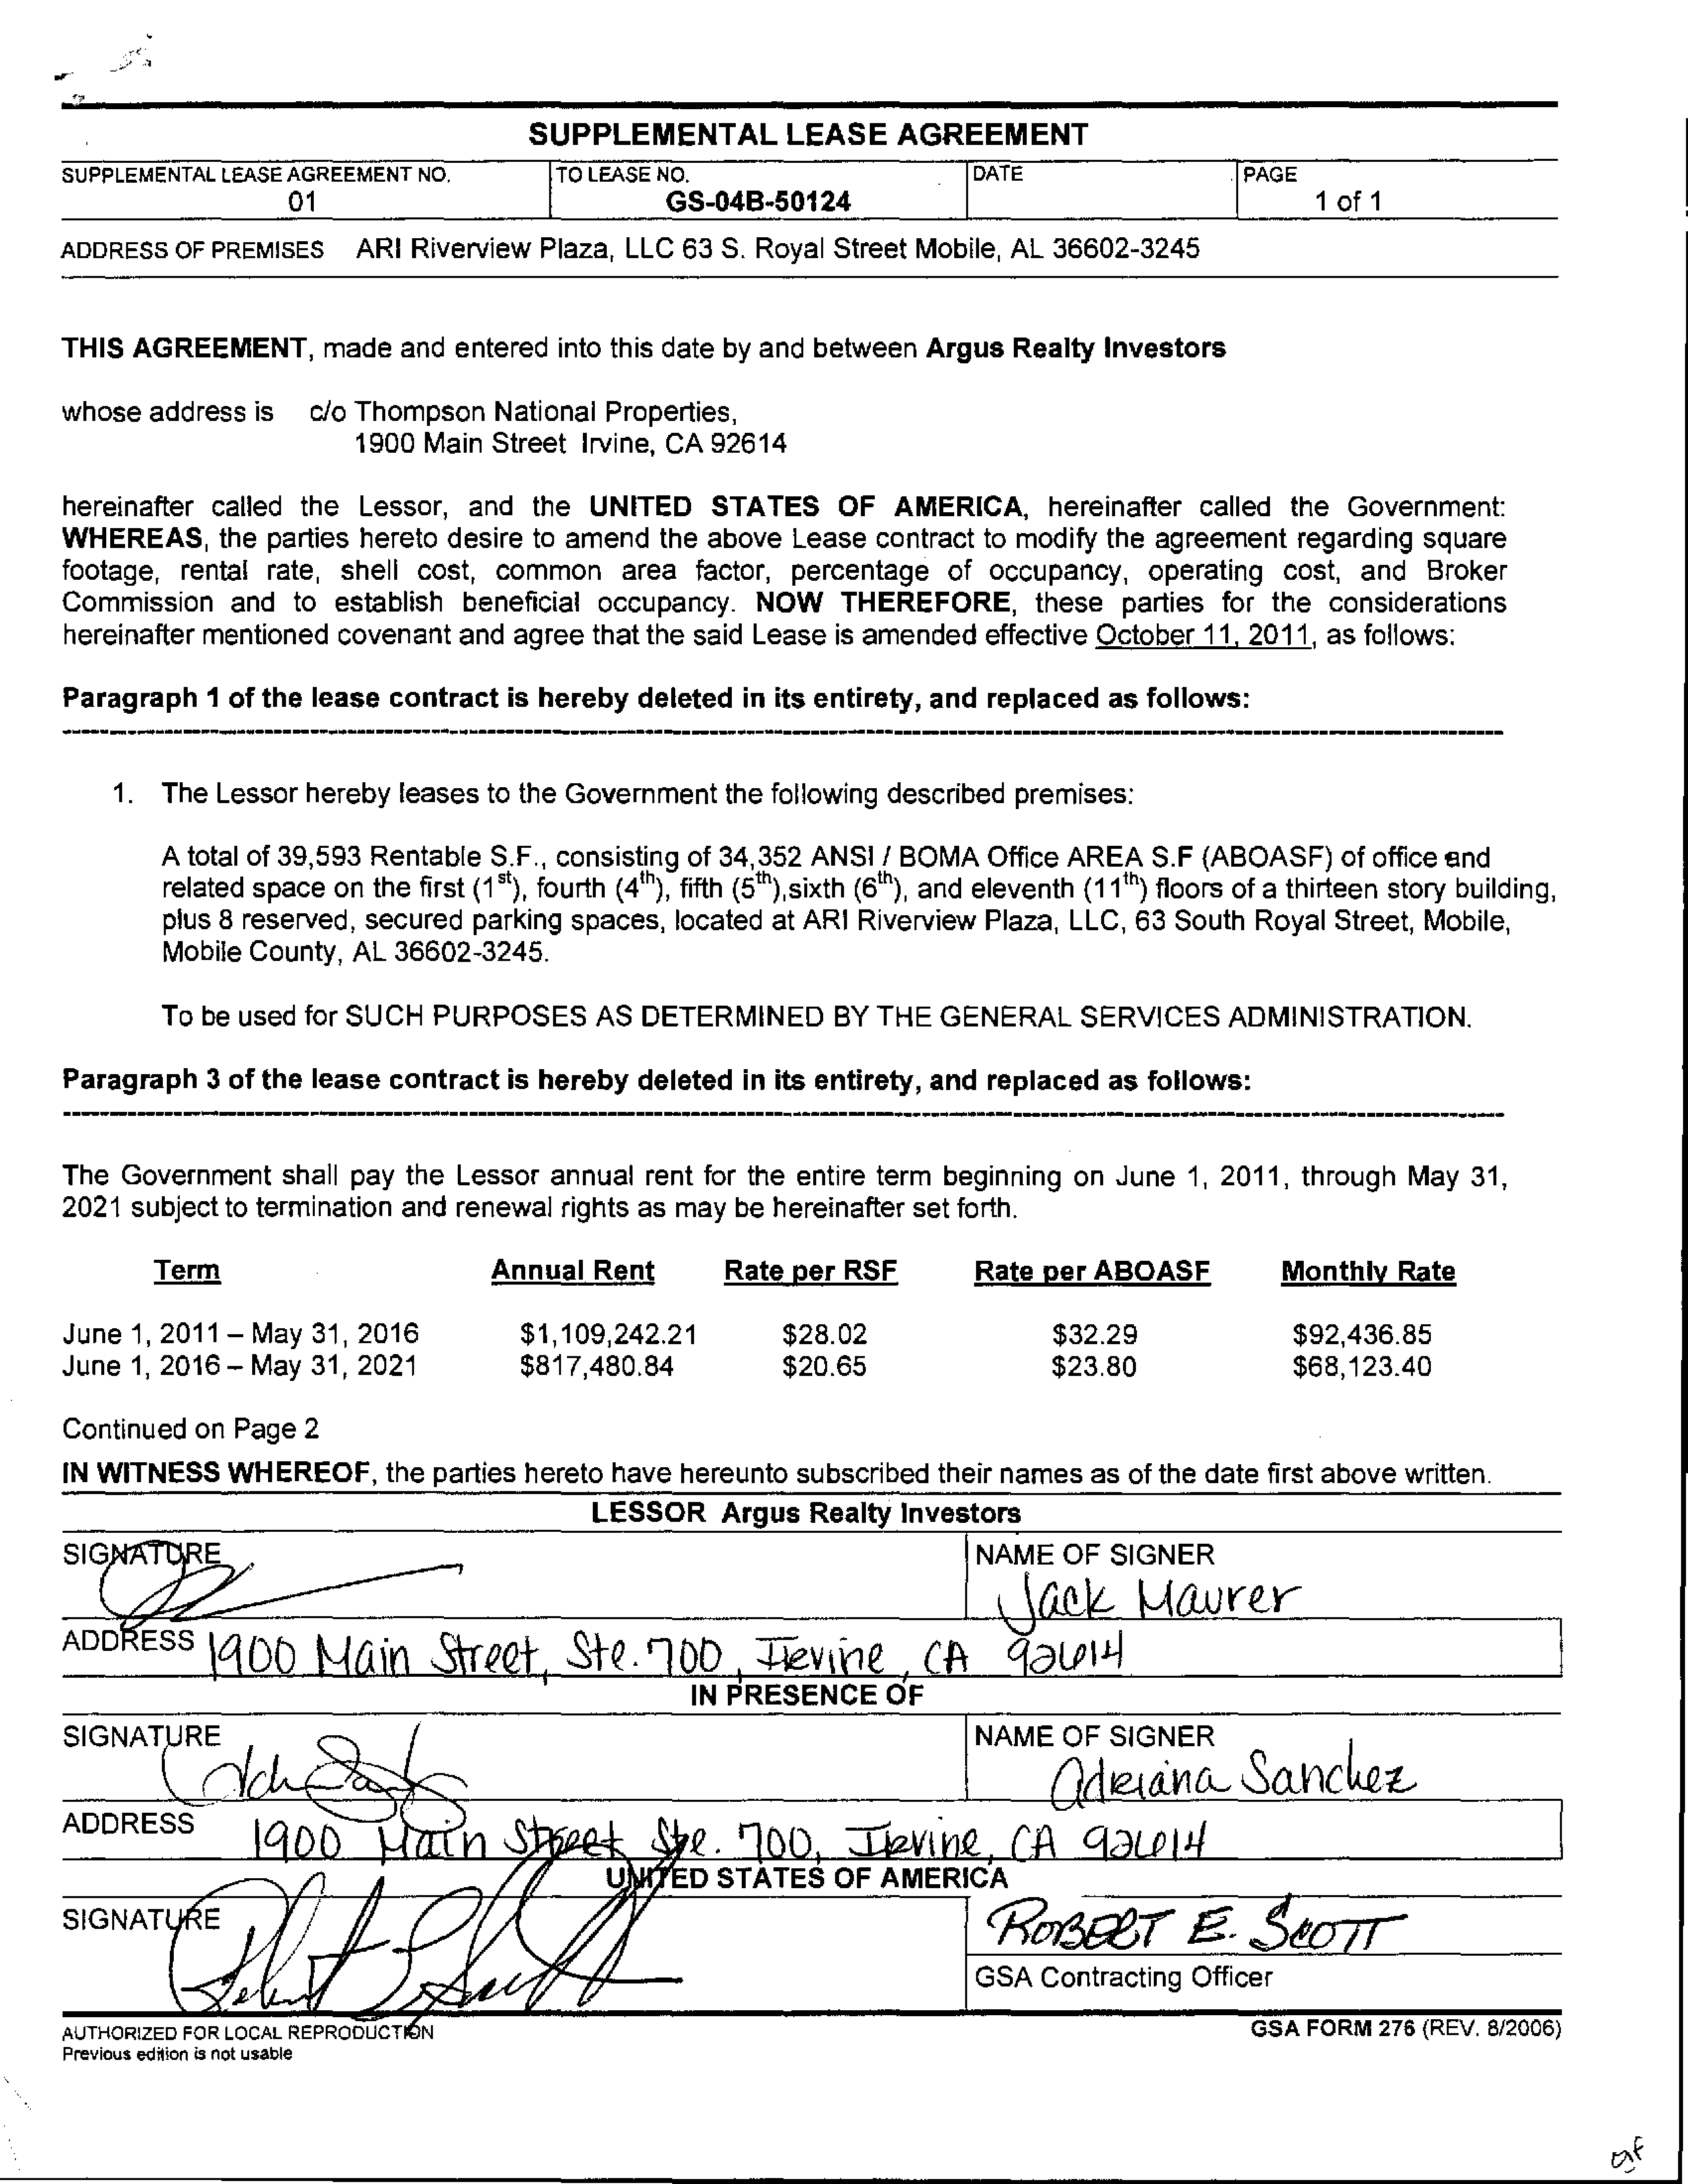 SUPPLEMENTAL LEASE AGREEMENT
SUPPLEMENTAL LEASE AGREEMENT NO. TO LEASE NO. DATE PAGE
01 GS-04B-50124 1 of 1
ADDRESS OF PREMISES ARI Riverview Plaza, LLC 63 S. Royal Street Mobile, AL 36602-3245
THIS AGREEMENT, made and entered into this date by and between Argus Realty Investors
whose address is c/o Thompson National Properties,
1900 Main Street Irvine, CA 92614
hereinafter called the Lessor, and the UNITED STATES OF AMERICA, hereinafter called the Government:
WHEREAS, the parties hereto desire to amend the above Lease contract to modify the agreement regarding square
footage, rental rate, shell cost, common area factor, percentage of occupancy, operating cost, and Broker
Commission and to establish beneficial occupancy. NOW THEREFORE, these parties for the considerations
hereinafter mentioned covenant and agree that the said Lease is amended effective October 11, 2011, as follows:
Paragraph 1 of the lease contract is hereby deleted in its entirety, and replaced as follows:
1. The Lessor hereby leases to the Government the following described premises:
A total of 39,593 Rentable S.F., consisting of 34,352 ANSI / BOMA Office AREA S.F (ABOASF) of office and
related space on the first (1st), fourth (4th), fifth (5th),sixth (6th), and eleventh (11th) floors of a thirteen story building,
plus 8 reserved, secured parking spaces, located at ARI Riverview Plaza, LLC, 63 South Royal Street, Mobile,
Mobile County, AL 36602-3245.
To be used for SUCH PURPOSES AS DETERMINED BY THE GENERAL SERVICES ADMINISTRATION.
Paragraph 3 of the lease contract is hereby deleted in its entirety, and replaced as follows:
The Government shall pay the Lessor annual rent for the entire term beginning on June 1, 2011, through May 31,
2021 subject to termination and renewal rights as may be hereinafter set forth.
Term Annual Rent Rate per RSF Rate per ABOASF Monthly Rate
June 1, 2011 – May 31, 2016 $1,109,242.21 $28.02 $32.29 $92,436.85
June 1, 2016 – May 31, 2021 $817,480.84 $20.65 $23.80 $68,123.40
Continued on Page 2
IN WITNESS WHEREOF, the parties hereto have hereunto subscribed their names as of the date first above written.
LESSOR Argus Realty Investors
SIGNATURE NAME OF SIGNER
Jack Maurer
ADDRESS 1900 Main Street, Ste. 700, Irvine, CA 92614
IN PRESENCE OF
SIGNATURE NAME OF SIGNER
Adriana Sanchez
ADDRESS 1900 Main Street Ste. 700, Irvine, CA 92614
UNITED STATES OF AMERICA
SIGNATURE ROBERT E. SCOTT
GSA Contracting Officer
AUTHORIZED FOR LOCAL REPRODUCTION GSA FORM 276 (REV. 8/2006)
Previous edition is not usable